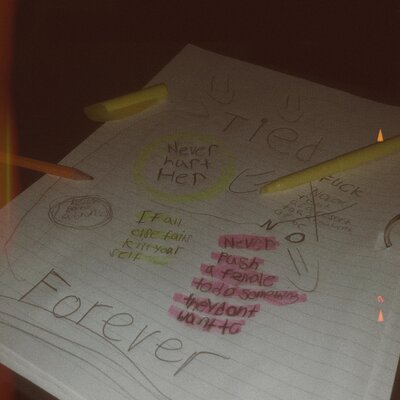 Tied
Never
hurt
Her
FUCK
NO
If all
else fails
kill your
self
Never
Push
a female
to do something
they dont
want to
Forever